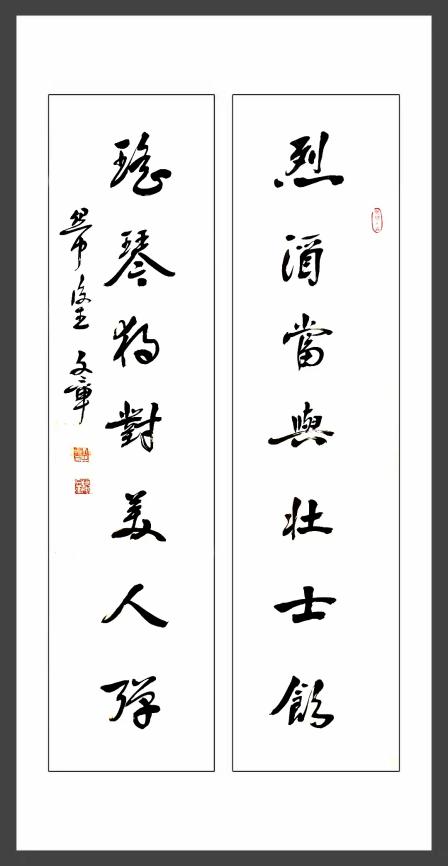 烈酒當與壯士飲
瑤琴獨對美人彈
文章